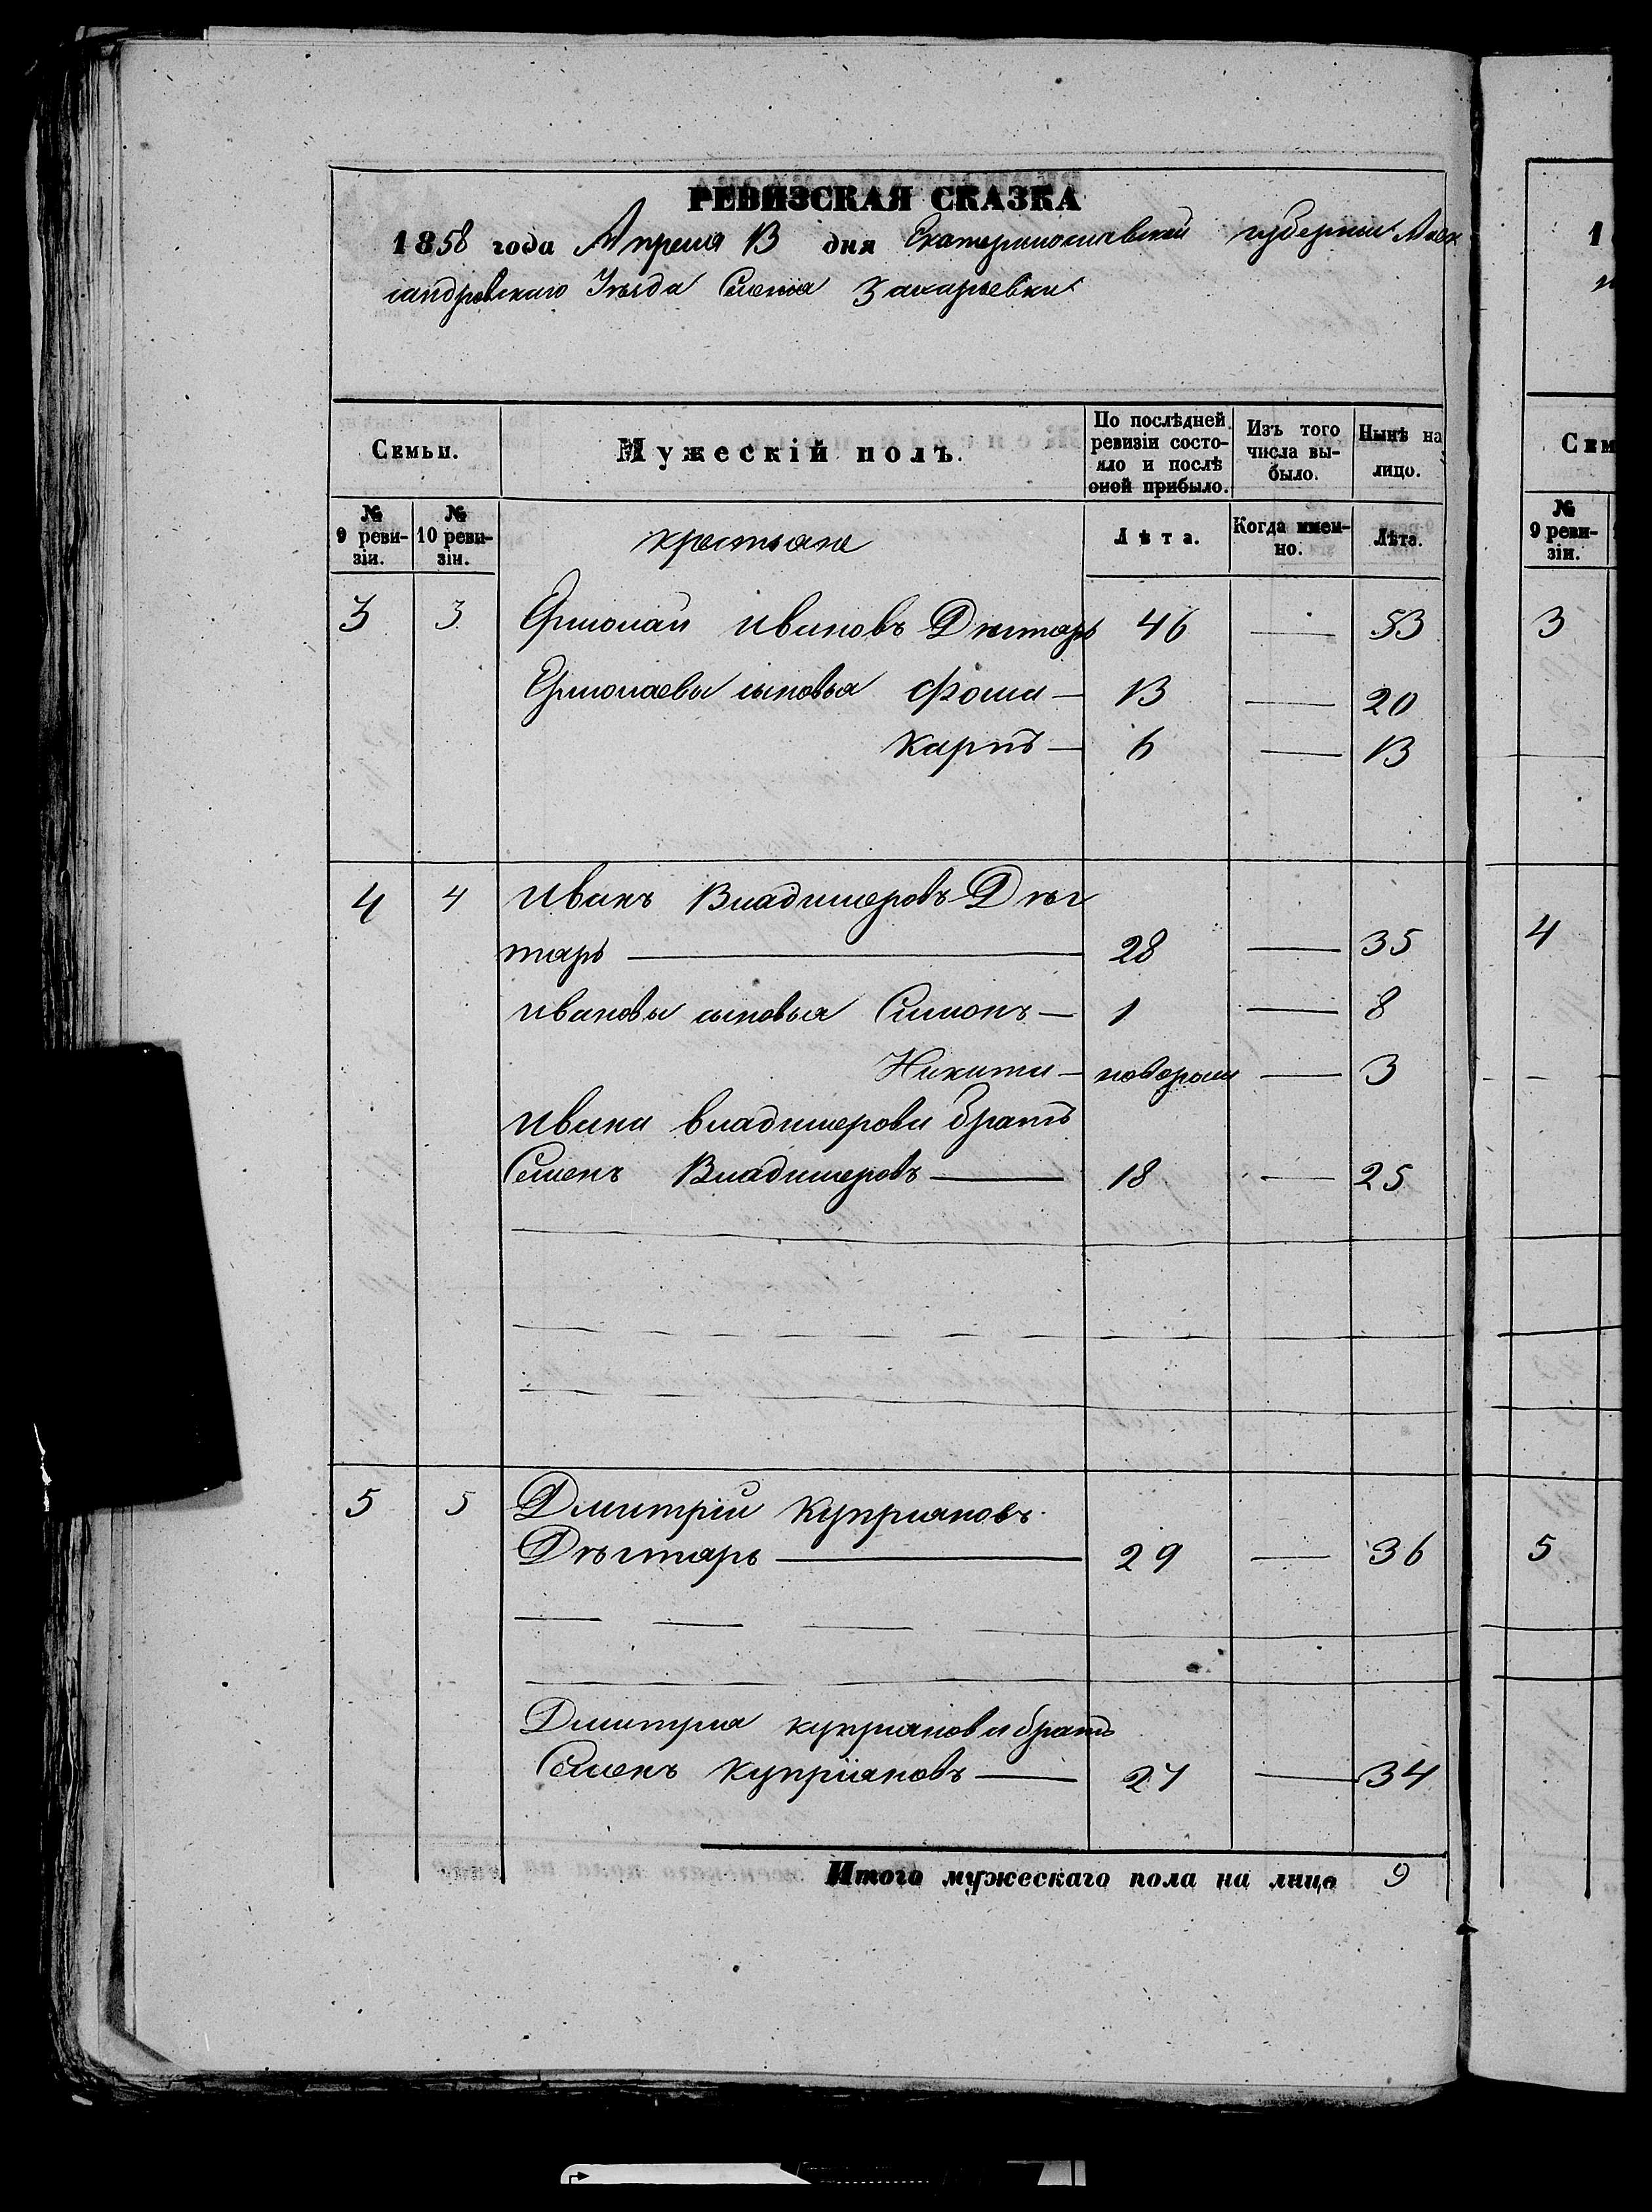 РЕВИЗСКАЯ СКАЗКА
1858 года Апреля 13 дня Екатеринославской губернии Алек
сандровскаго Уѣзда Селенія Захарьевки
Семьи. Мужескій полъ. По послѣдней ревизіи состояло и послѣ оной прибыло. Изъ того числа выбыло. Нынѣ на лицо.
№ 9 ревизіи. № 10 ревизіи. крестьяне Лѣта. Когда именно. Лѣта.
3 3 Ермолай Ивановъ Дѣгтарь 46 — 53
Ермолаевы сыновья Фома — 13 — 20
Карпъ — 6 — 13
4 4 Иванъ Владимеровъ Дѣг
тарь — 28 — 35
Ивановы сыновья Симонъ — 1 — 8
Никита — новорож — 3
Ивана Владимерова братъ
Семенъ Владимеровъ — 18 — 25
5 5 Дмитрій Купріановъ
Дѣгтарь — 29 — 36
Дмитрія Купріанова братъ
Семенъ Купріановъ — 27 — 34
Итого мужескаго пола на лицо 9
1
Сем
№ 9 ревизіи.
3
4
5